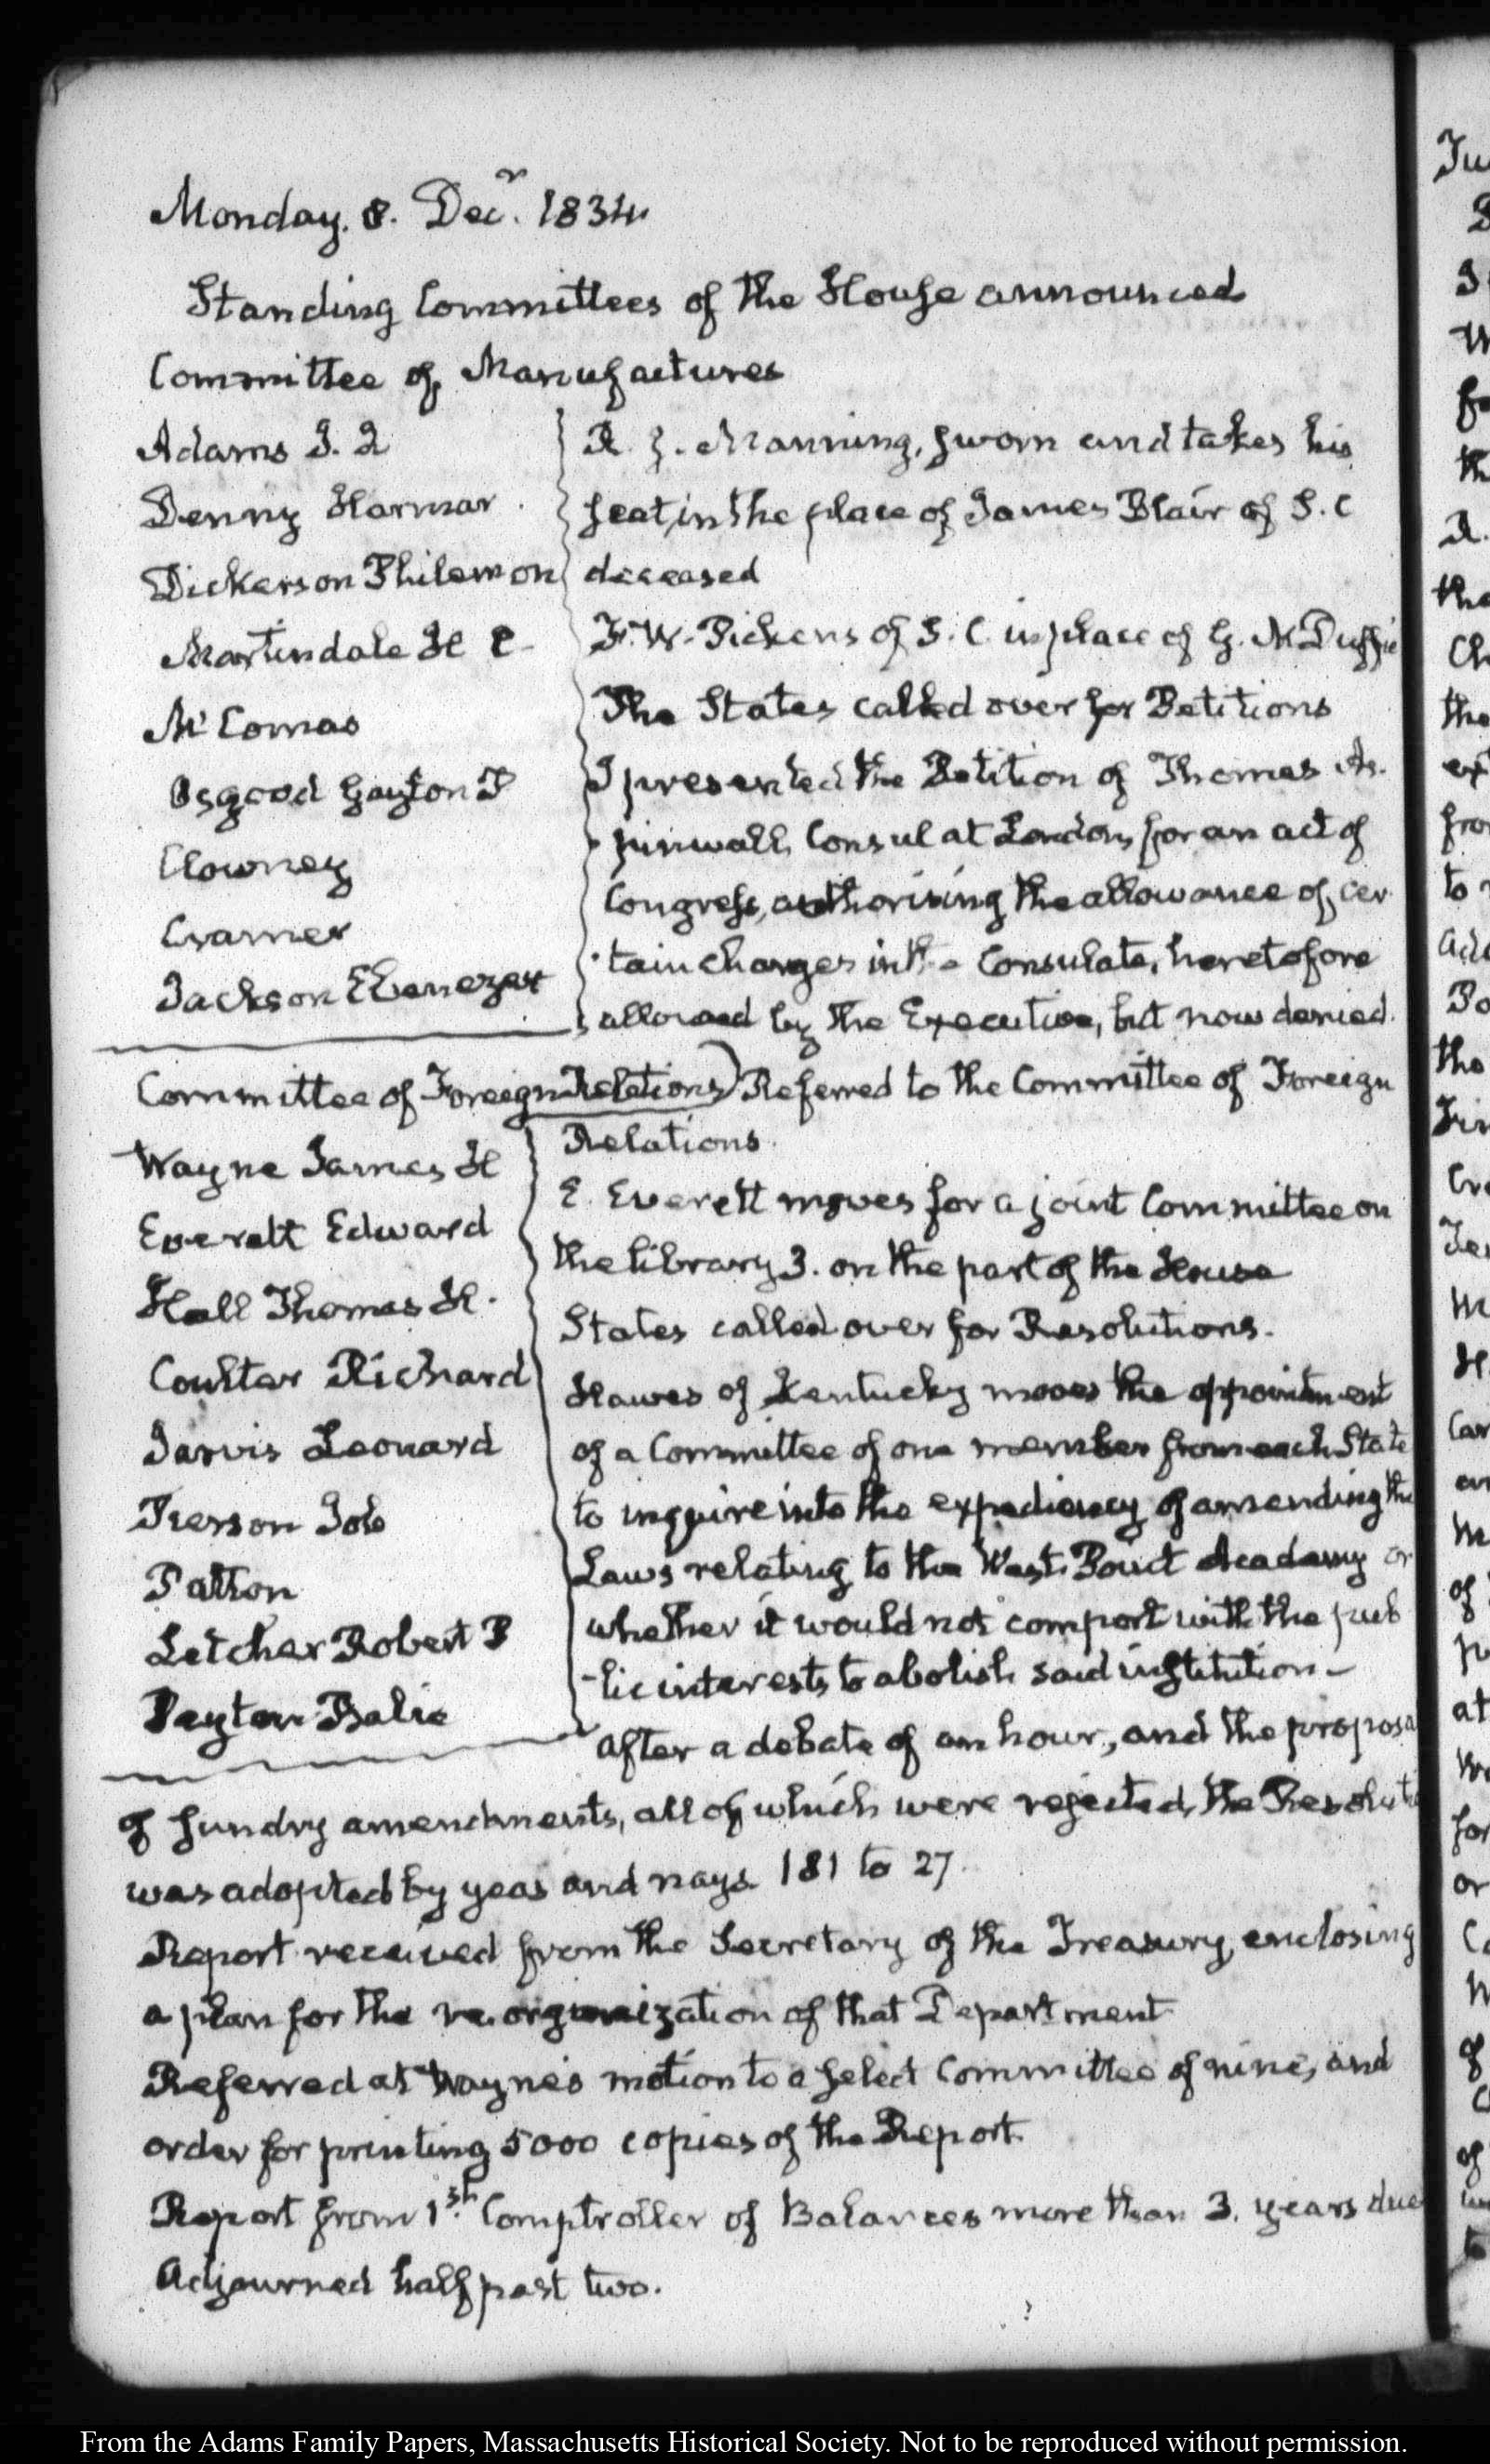 Monday. 8. Decr. 1834.
Standing Committees of the House announced
Committee of Manufactures
Adams J. Q
Denny Harmar.
Dickerson Philemon
Martindale H C.
McComas
Osgood Gayton P
Clowney
Cramer
Jackson Ebenezer
R. I. Manning, sworn and takes his
seat, in the place of James Blair of S. C
deceased
F. W. Pickens of S. C. in place of G. McDuffie
The States called over for Petitions
I presented the Petition of Thomas As-
-pinwall, Consul at London, for an act of
Congress, authorising the allowance of cer
-tain charges in the Consulate, heretofore
allowed by the Executive, but now denied.
Committee of Foreign Relations
Wayne James H
Everett Edward
Hall Thomas H.
Coulter Richard
Jarvis Leonard
Pierson Job
Patton
Letcher Robert P
Peyton Balie
Referred to the Committee of Foreign
Relations.
E. Everett moves for a joint Committee on
the library 3. on the part of the House
States called over for Resolutions.
Hawes of Kentucky moves the appointment
of a Committee of one member from each State
to inquire into the expediency of amending the
Laws relating to the West-Point Academy or
whether it would not comport with the pub
-lic interests to abolish said institution—
After a debate of an hour, and the proposal
of sundry amendments, all of which were rejected, the Resolutio
was adopted by yeas and nays 181 to 27.
Report received from the Secretary of the Treasury, enclosing
a plan for the re-organization of that Department
Referred at Wayne's motion to a select Committee of nine, and
order for printing 5000 copies of the Report.
Report from 1st. Comptroller of Balances more than 3. years due
Adjourned half past two.
From the Adams Family Papers, Massachusetts Historical Society. Not to be reproduced without permission.